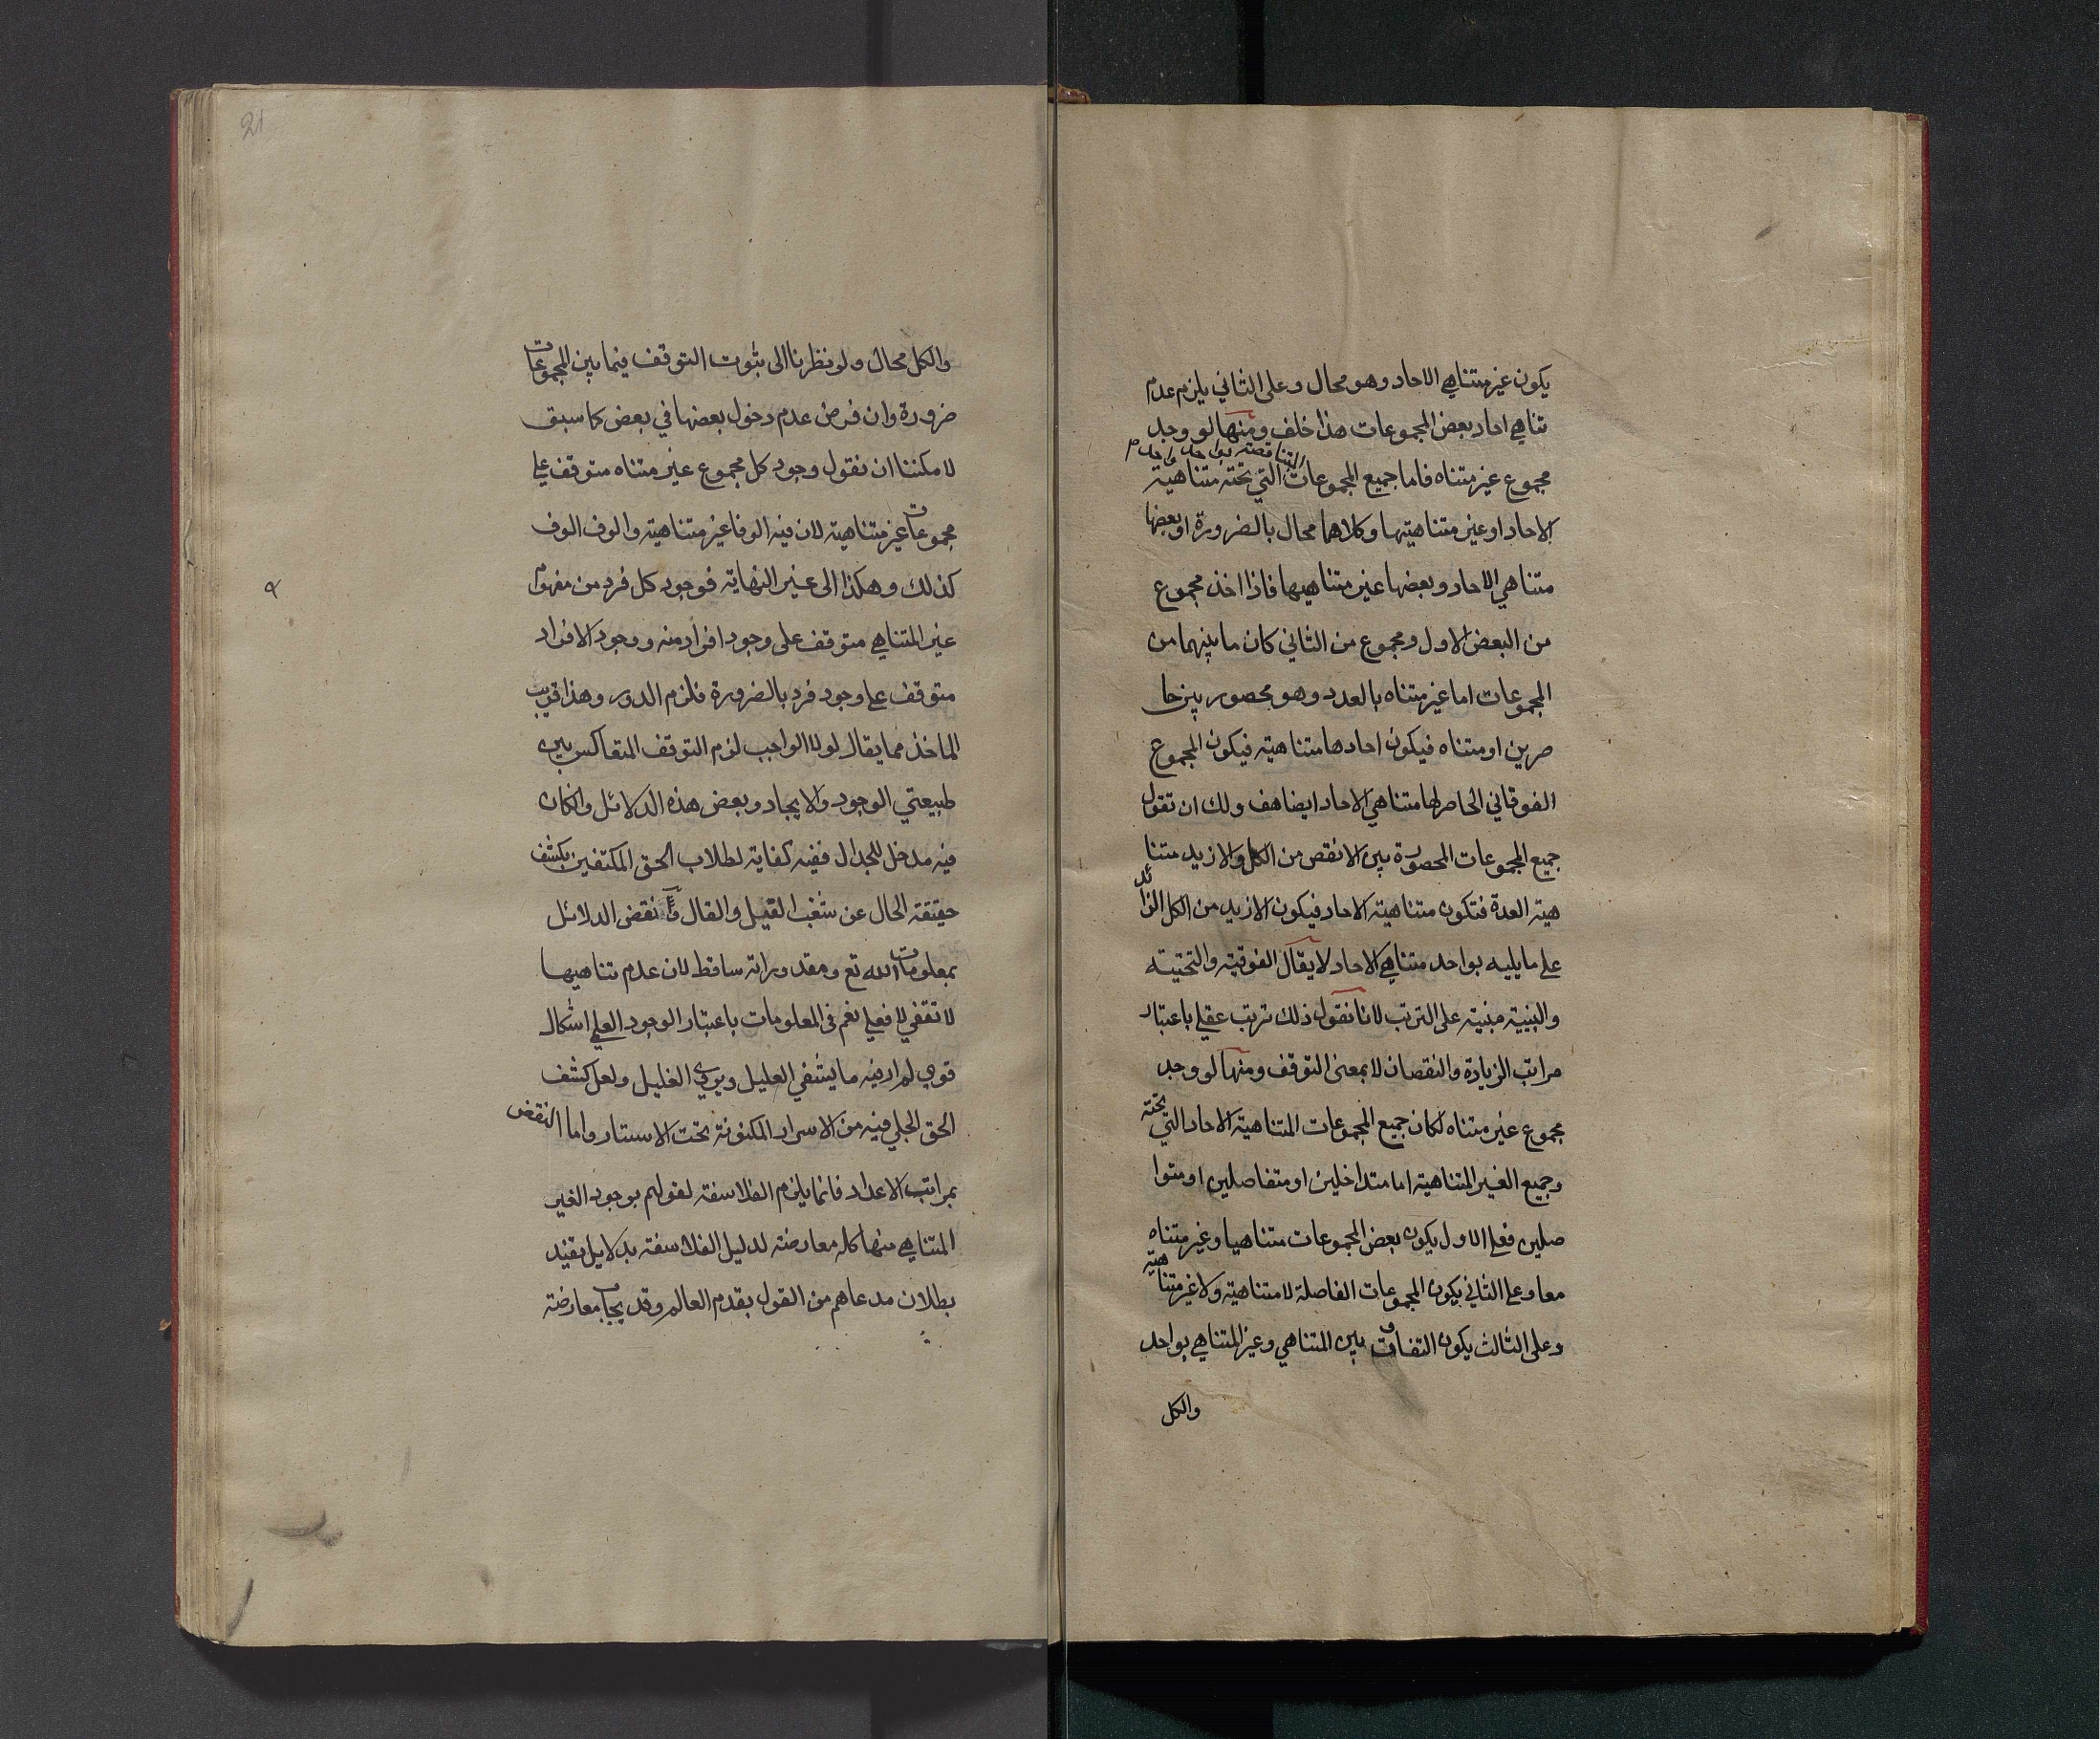 يكون غير متناهي الاحاد وهو محال وعلى الثاني يلزم عدم
تناهي احاد بعض المجموعات هذا خلف ومنها لو وجد
المتناقصة بواحد واحد م
مجموع غير متناه فاما جميع المجموعات التي تحته متناهية
الاحاد او غير متناهيتها وكلاهما محال بالضرورة او بعضها
متناهي الاحاد وبعضها غير متناهيها فاذا اخذ مجموع
من البعض الاول ومجموع من الثاني كان ما بينهما من
المجموعات اما غير متناه بالعدد وهو محصور بين حا
صرين او متناه فيكون احادها متناهية فيكون المجموع
الفوقاني الحاصر لها متناهي الاحاد ايضا هف ولك ان تقول
جميع المجموعات المحصورة بين الانقص من الكل والازيد متنا
هية العدة فتكون متناهية الاحاد فيكون الازيد من الكل الزائد
على ما يليه بواحد متناهي الاحاد لا يقال الفوقية والتحتية
والبينية مبنية على الترتب لانا نقول ذلك ترتب عقلي باعتبار
مراتب الزيادة والنقصان لا بمعنى التوقف ومنها لو وجد
مجموع غير متناه لكان جميع المجموعات المتناهية الاحاد التي تحته
وجميع الغير المتناهية اما متداخلين او متفاصلين او متوا
صلين فعلى الاول يكون بعض المجموعات متناهيا وغير متناه
معا وعلى الثاني يكون المجموعات الفاصلة لا متناهية ولا غير متناهية
وعلى الثالث يكون التفاوت بين المتناهي وغير المتناهي بواحد
والكل
21
والكل محال ولو نظرنا الى ثبوت التوقف فيما بين المجموعات
ضرورة وان فرض عدم دخول بعضها في بعض كما سبق
لامكننا ان نقول وجود كل مجموع غير متناه متوقف على
مجموعات غير متناهية لان فيه الوفا غير متناهية والوف الوف
كذلك وهكذا الى غير النهاية فوجود كل فرد من مفهوم
غير المتناهي متوقف على وجود افراد منه ووجود الافراد
متوقف على وجود فرد بالضرورة فلزم الدور وهذا قريب
الماخذ مما يقال لولا الواجب لزم التوقف المتعاكس بين
طبيعتي الوجود والايجاد وبعض هذه الدلائل وان كان
فيه مدخل للجدال ففيه كفاية لطلاب الحق المكتفين بكشف
حقيقة الحال عن شغب القيل والقال نقض الدلائل
بمعلومات الله تع ومقدوراته ساقط لان عدم تناهيها
لا تقفي لا فعلي نعم في المعلومات باعتبار الوجود العلمي اشكال
قوي لم ار فيه ما يشفي العليل ويروي الغليل ولعل كشف
الحق الجلي فيه من الاسرار المكنونة تحت الاستار واما النقض
بمراتب الاعداد فانما يلزم الفلاسفة لقولهم بوجود الغير
المتناهي منها كله معارضة لدليل الفلاسفة بدلايل تفيد
بطلان مدعاهم من القول بقدم العالم وقد يجاب معارضة